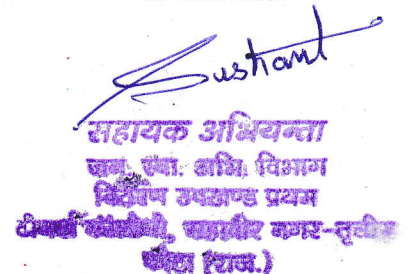 Sushant
सहायक अभियन्ता
जन. स्वा. अभि. विभाग
उपखण्ड प्रथम
महावीर नगर-तृतीय
कोटा (राज.)